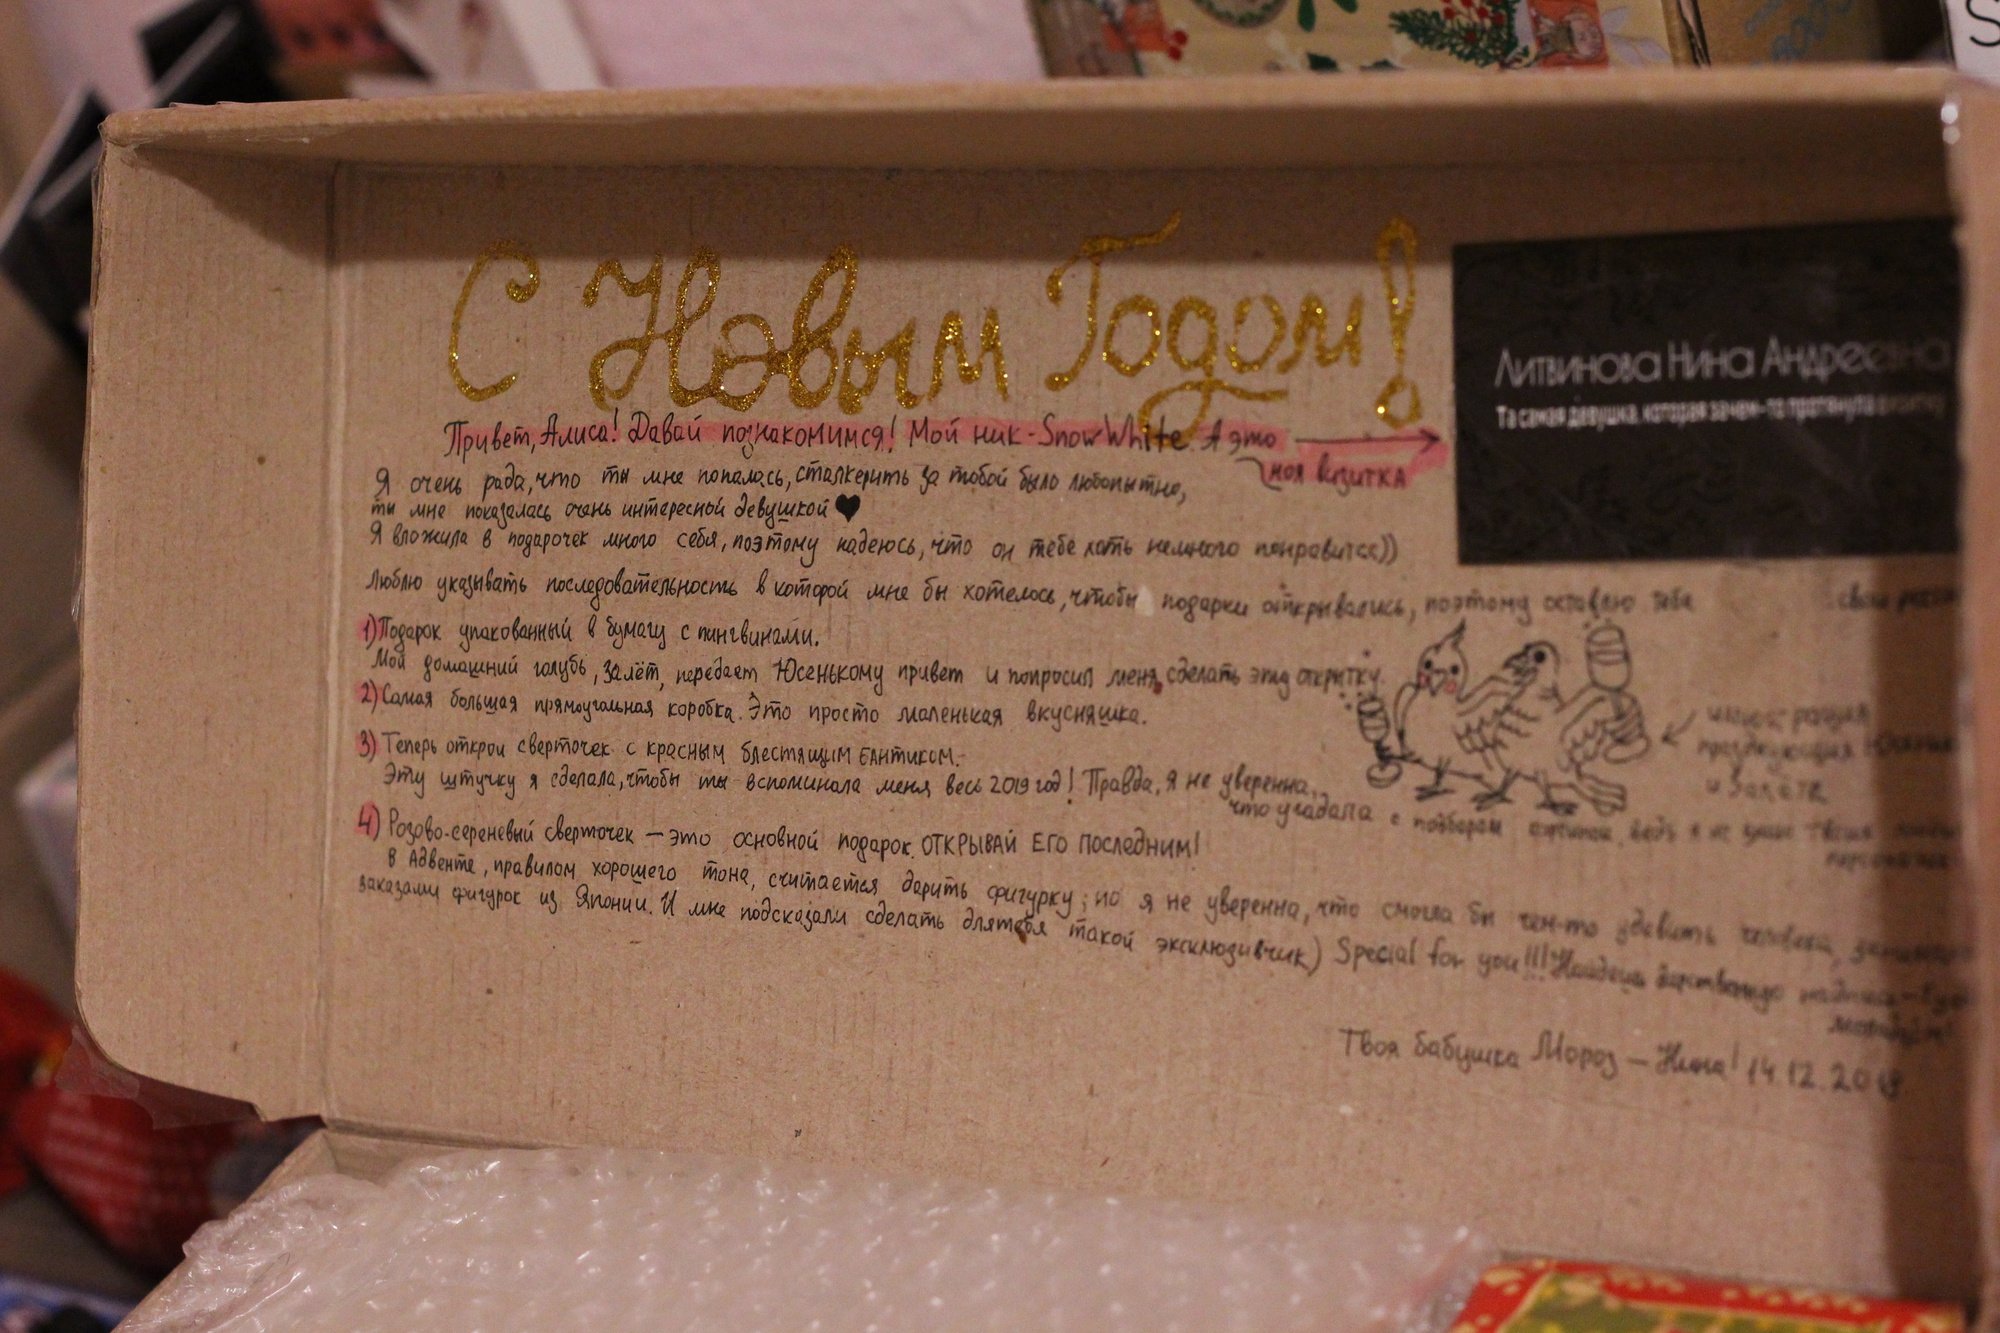 С Новым Годом!
Литвинова Нина Андреевна
Та самая девушка, которая зачем-то протянула визитку
Привет, Алиса! Давай познакомимся! Мой ник - SnowWhite. А это
моя визитка
Я очень рада, что ты мне попалась, сталкерить за тобой было любопытно,
ты мне показалась очень интересной девушкой
Я вложила в подарочек много себя, поэтому надеюсь, что он тебе хоть немного понравится))
Люблю указывать последовательность в которой мне бы хотелось, чтобы подарки открывались, поэтому оставлю тебе свои
1) Подарок упакованный в бумагу с пингвинами.
Мой домашний голубь, Залёт, передаёт Юсенькому привет и попросил меня сделать эту открытку.
2) Самая большая прямоугольная коробка. Это просто маленькая вкусняшка.
3) Теперь открой сверточек с красным блестящим бантиком.
Эту штучку я сделала, чтобы ты вспоминала меня весь 2019 год! Правда, я не уверенна,
что угадала с подбором картинок, ведь я не знаю твоих
и Залёта
4) Розово-сереневый сверточек — это основной подарок. ОТКРЫВАЙ ЕГО ПОСЛЕДНИМ!
В Адвенте, правилом хорошего тона, считается дарить фигурку; но я не уверенна, что смогла бы чем-то удивить человека,
заказами фигурок из Японии. И мне подсказали сделать для тебя такой эксклюзивчик) Special for you!!! Найдешь дарственную надпись -
Твоя бабушка Мороз — Нина! 14.12.2018
S